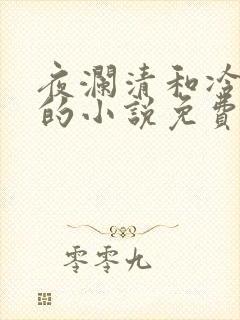 夜瀾清和冷
的小說免費
零零九